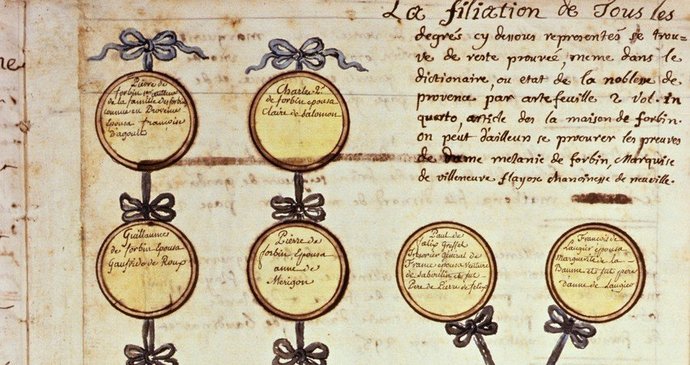 La filiation de Tous les
degrés cy dessous representés se trou=
ve de reste prouvée meme dans le
dictionaire, ou etat de la noblesse de
provence par artefeuille 2 vol. in
quarto, article dos la maison de forbin.
on peut d'ailleurs se procurer les preuves
de Dame melanie de forbin, Marquise
de villeneuve flayox chanoinesse de neuville.
Pierre de
forbin
de la famille de forbin
connue en Provence
Epousa francoise
D'agoult
Charles 2e
de forbin epousa
Claire de Salomon
Guillaumes
de forbin Epousa
de Roux
Pierre de
forbin Epousa
anne de
Merigon
Paul de
felix Greffet
tresorier General de
France epousa
de Saboulin et fut
Pere de Pierre de felix
Francois de
Laugier épousa
Marguerite de la
Baume et fut pere
Danne de Laugier